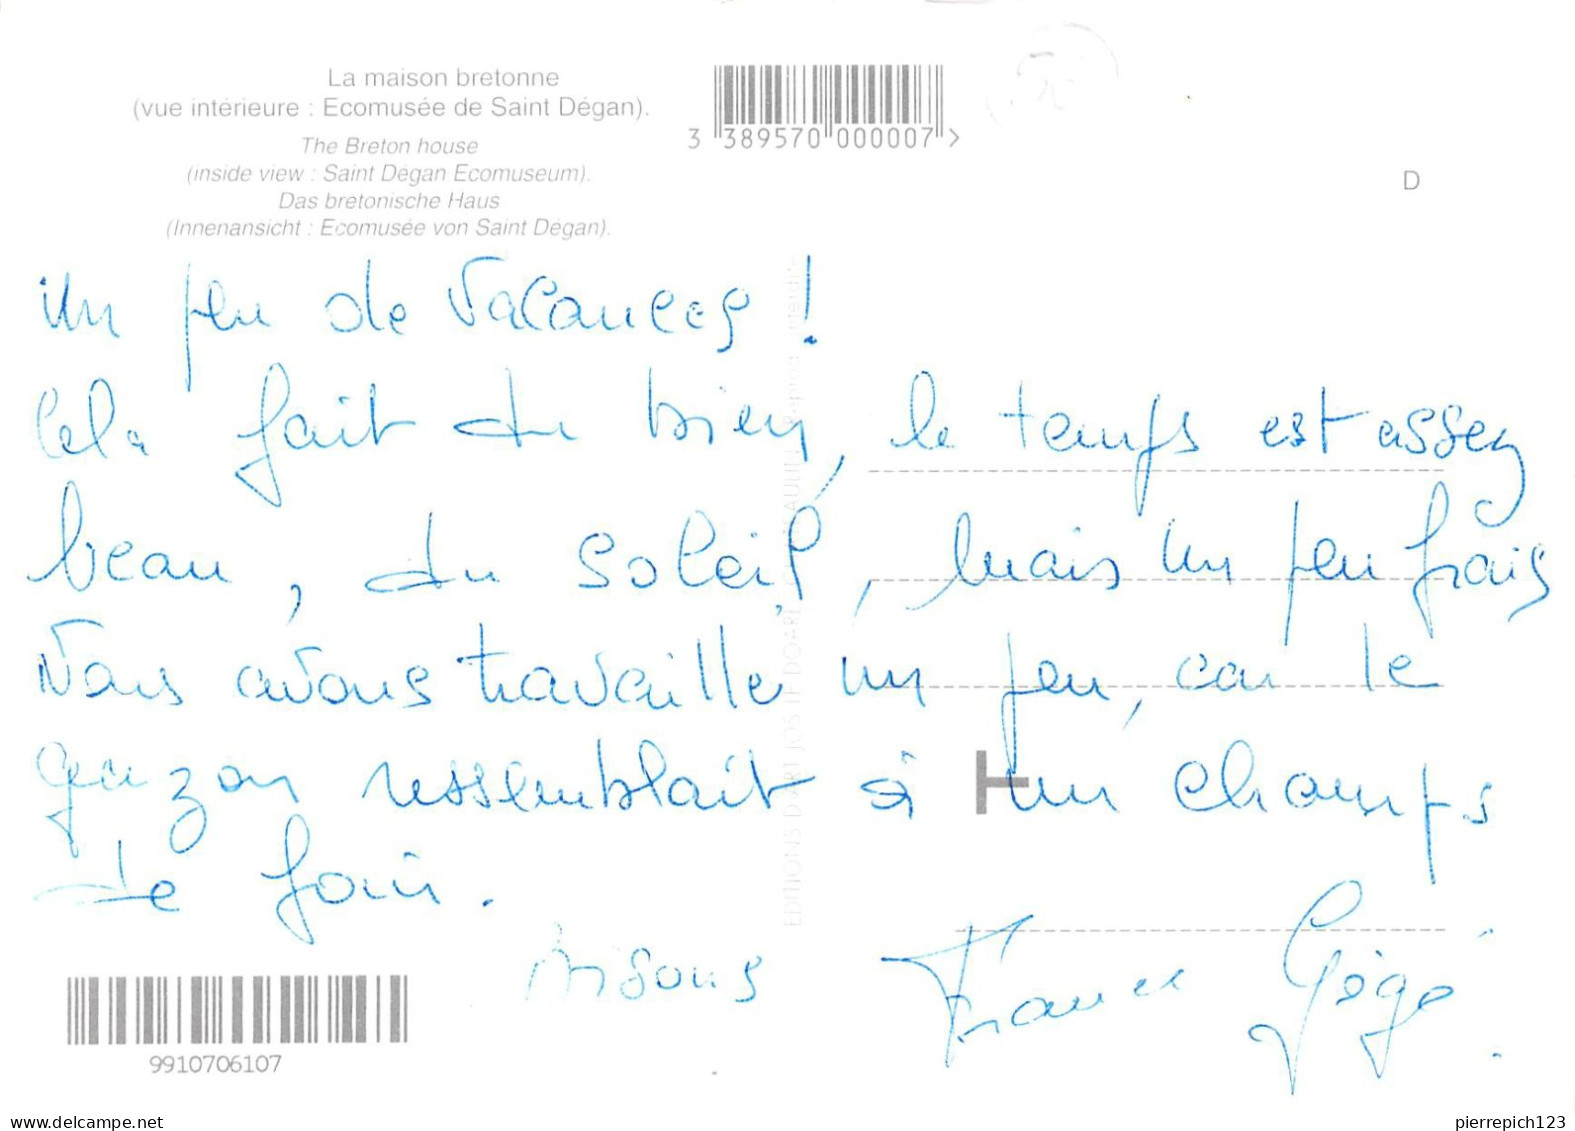 La maison bretonne
(vue intérieure : Ecomusée de Saint Dégan).
The Breton house
(inside view : Saint Dégan Ecomuseum).
Das bretonische Haus
(Innenansicht : Ecomusée von Saint Dégan).
3 389570 000007 >
D
Un peu de vacances !
Cela fait du bien, le temps est assez
beau, du soleil, mais un peu frais
Nous avons travaillé un peu, car le
gazon ressemblait à un champs
de foin.
Bisous France Gégé.
EDITIONS D'ART JOS LE DOARE
9910706107
www.delcampe.net
pierrepich123